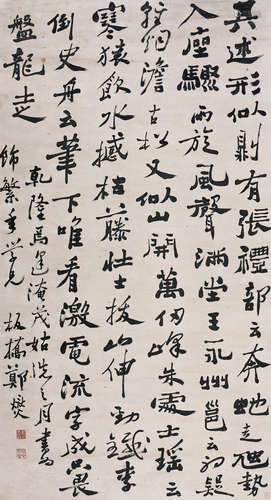 其述形似則有張禮部云奔蛇走虺勢
入座驟雨旋風聲滿堂王永州邕云初疑
輕烟澹古松又似山開萬仞峰朱處士瑶云
寒猿飲水撼枯藤壯士拔山伸勁鐵李
御史舟云筆下唯看激電流字成只畏
盤龍走
乾隆焉逢淹茂姑洗之月書為
飾繁年學兄 板橋鄭燮